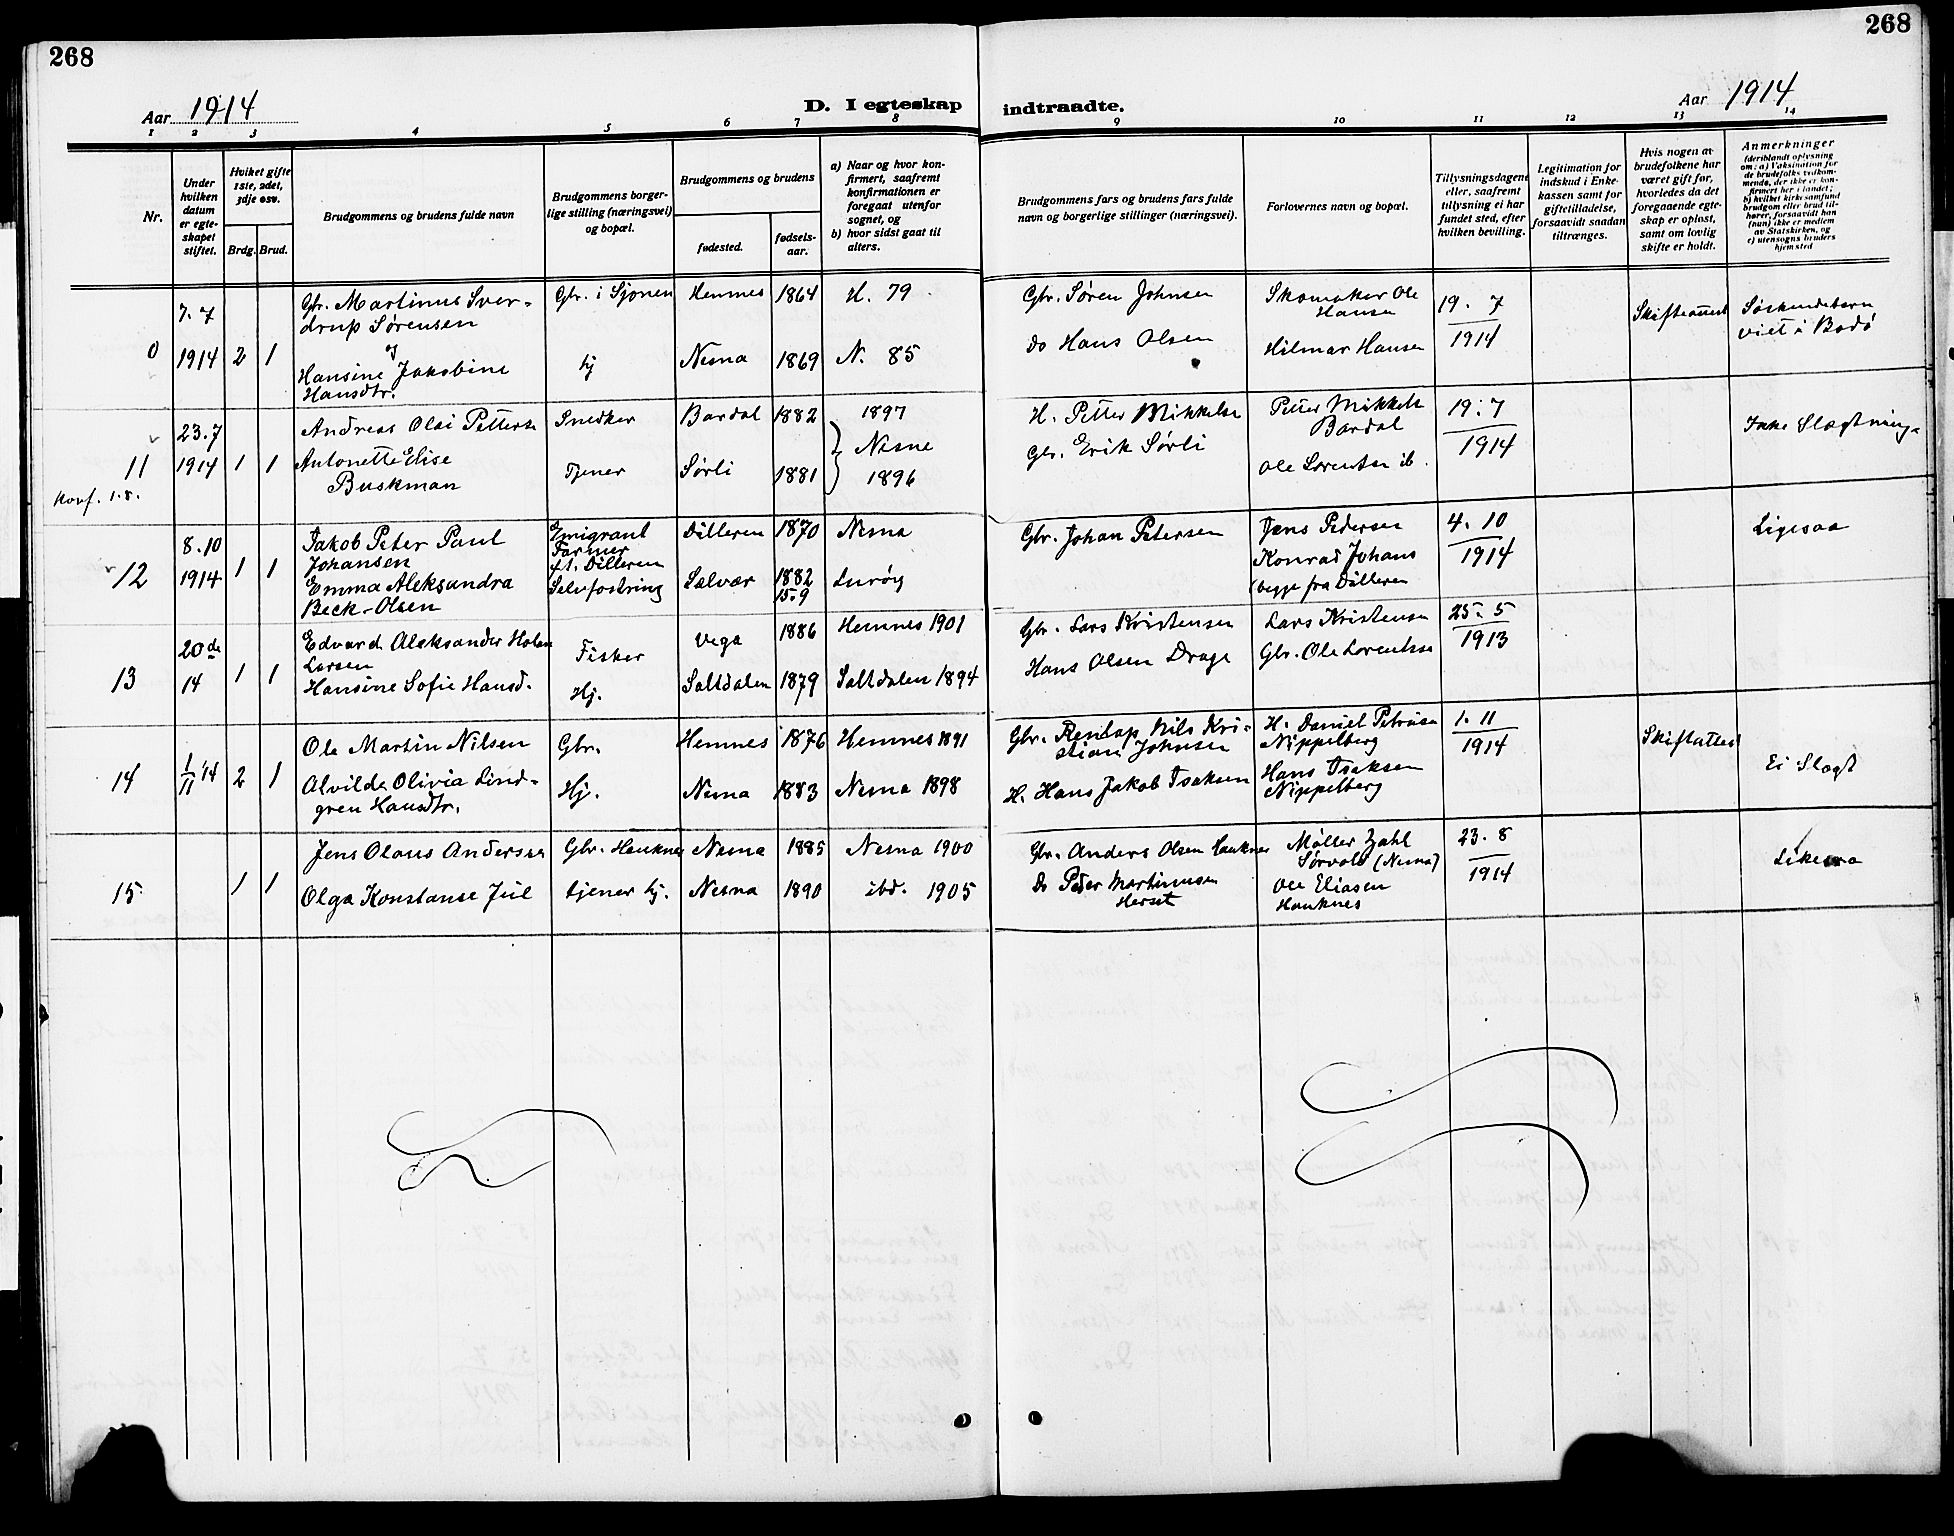 268
268
Aar 1914
D. I egteskap
indtraadte.
Aar 1914
1 2 3 4 5 6 7 8 9 10 11 12 13 14
Nr.
Under
hvilken
datum
er egte-
skapet
stiftet.
Hvilket gifte
1ste, 2det,
3dje osv.
Brdg. Brud.
Brudgommens og brudens fulde navn
Brudgommens borger-
lige stilling (næringsvei)
og bopæl.
Brudgommens og brudens
fødested.
fødsels-
aar.
a) Naar og hvor kon-
firmert, saafremt
konfirmationen er
foregaat utenfor
sognet, og
b) hvor sidst gaat til
alters.
Brudgommens fars og brudens fars fulde
navn og borgerlige stillinger (næringsvei).
Forlovernes navn og bopæl.
Tillysningsdagene
eller, saafremt
tillysning ei har
fundet sted, efter
hvilken bevilling.
Legitimation for
indskud i Enke-
kassen samt for
giftetilladelse,
forsaavidt saadan
tiltrænges.
Hvis nogen av
brudefolkene har
været gift før,
hvorledes da det
foregaaende egte-
skap er opløst,
samt om lovlig
skifte er holdt.
Anmerkninger
(deriblandt oplysning
om: a) Vaksination for
de brudefolks vedkom-
mende, der ikke er kon-
firmert her i landet;
b) hvilket kirkesamfund
brudgom eller brud til-
hører, forsaavidt han
(hun) ikke er medlem
av Statskirken, og
c) utensogns bruders
hjemsted
0
7. 7
1914 2 1
Gbr. Martinus Sver-
drup Sørensen
og
Hansine Jakobine
Hansdtr.
Gbr. i Sjonen
Hj
Hemnes 1864 H. 79
Nesna 1869 N. 85
Gbr. Søren Johnsen
do Hans Olsen
Skomaker Ole
Hansen
Hilmar Hansen
19. 7
1914
Skifteattest
Søskendebarn
viet i Bodø
11
Konf. 1.8.
23.7
1914 1 1
Andreas Olai Petterse
Antonette Elise
Buskman
Snedker
Tjener
Bardal 1882 1897
Nesne
Sørli 1881 1896
H. Petter Mikkelse
Gbr. Erik Sørli
Petter Mikkels
Bardal
Ole Lorentsen ib.
19. 7
1914
Ikke Slægtninge
12
8.10
1914 1 1
Jakob Peter Paul
Johansen
Emma Aleksandra
Beck-Olsen
Emigrant
Farmer
f.t. Dilleren
Selvfostring
Dilleren 1870 Nesna
Selvær 1882
15.9
Lurøy
Gbr. Johan Petersen
Jens Pedersen
Konrad Johans
(begge fra Dilleren
4. 10
1914
Ligesaa
13
20de
14 1 1
Edvard Aleksander Holan
Larsen
Hansine Sofie Hansd.
Fisker
Hj.
Vega 1886 Hemnes 1901
Saltdalen 1879 Saltdalen 1894
Gbr. Lars Kristensen
Hans Olsen Drage
Lars Kristensen
Gbr. Ole Lorentse
25. 5
1913
14
1/11 '14 2 1
Ole Martin Nilsen
Alvilde Olivia Lind-
gren Hansdtr.
Gbr.
Hj.
Hemnes 1876 Hemnes 1891
Nesna 1883 Nesna 1898
Gbr. Nils Kri-
stian Johnsen
H. Hans Jakob Isaksen
H. Daniel Petrisen
Nippelberg
Hans Isaksen
Nippelberg
1. 11
1914
Skiftattest
Ei Slegt
15
1 1
Jens Olaus Andersen
Olga Konstanse Juul
Gbr. Hauknes
tjener hj.
Nesna 1885 Nesna 1900
Nesna 1890 ibd. 1905
Gbr. Anders Olsen Hauknes
Do Peder Martinusen
Herset
Møller Zahl
Sørvold (Nesna)
Ole Eliasen
Hauknes
23. 8
1914
Likesaa